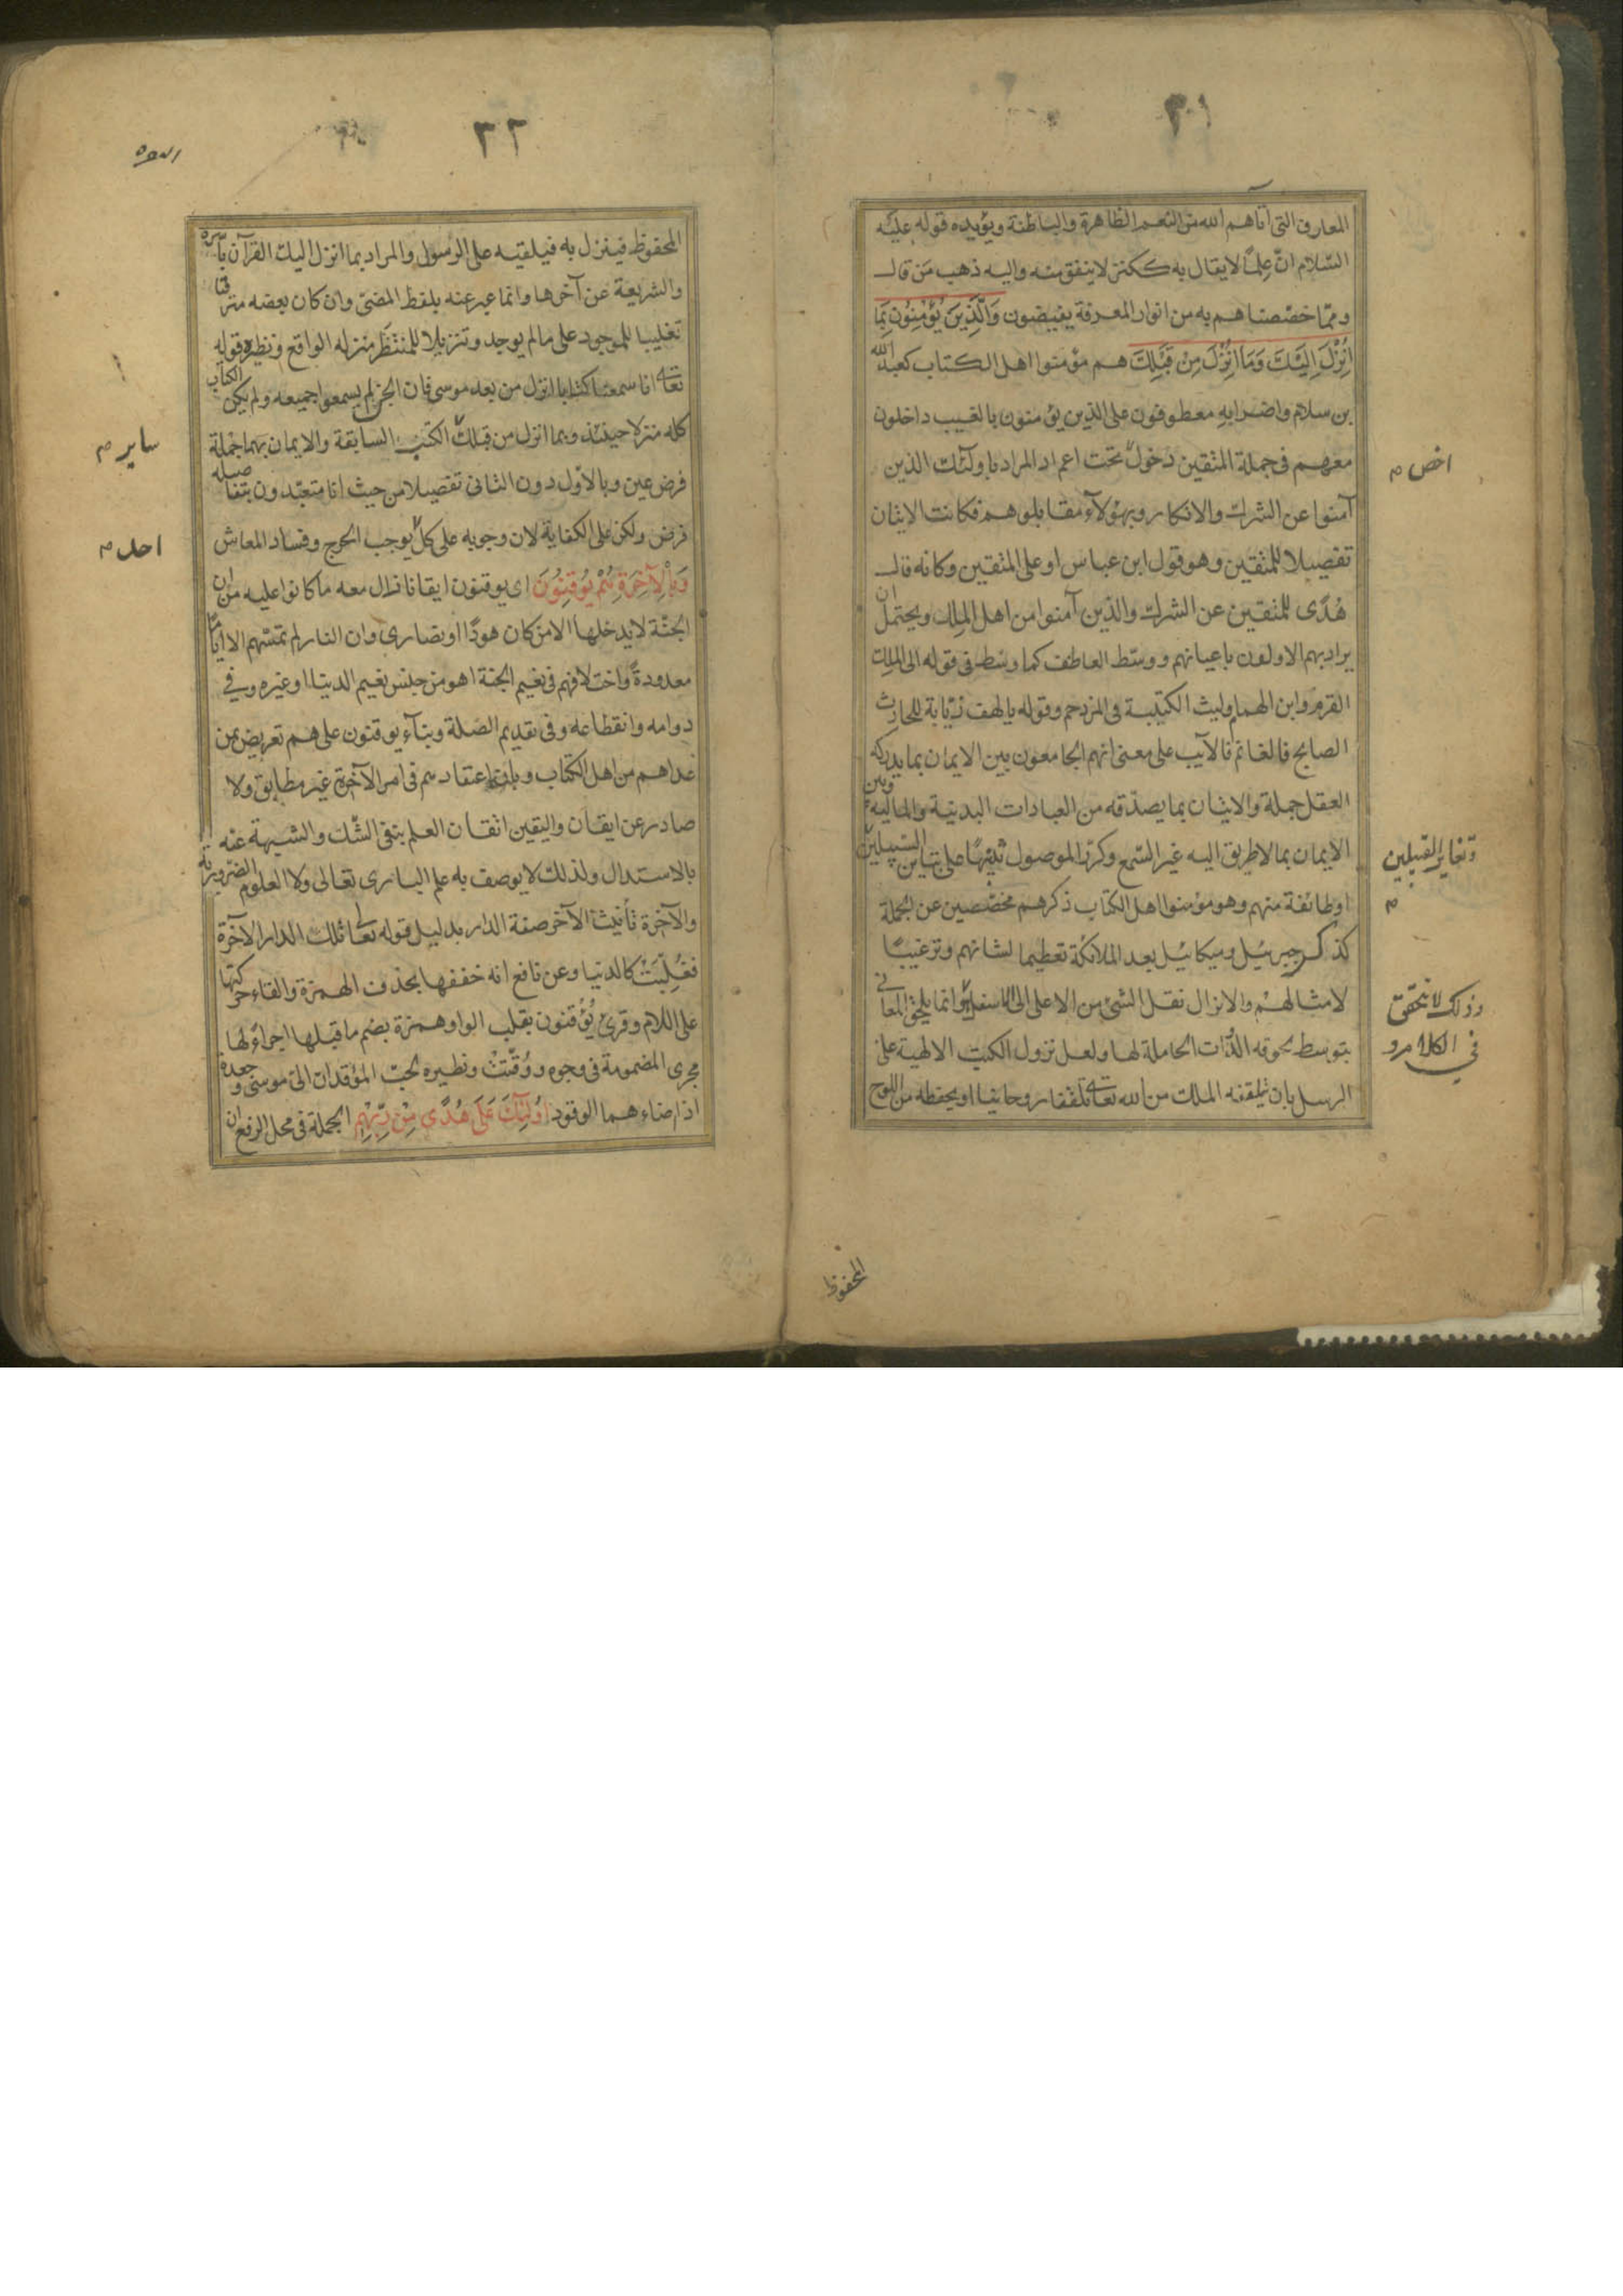 ٣١
المعارف التى اتاهم الله من النعم الظاهرة والباطنة ويؤيده قوله عليه
السلام ان علمًا لا يقال به ككنز لا ينفق منه واليه ذهب من قال
ومما خصصناهم به من انوار المعرفة يفيضون وَالَّذِينَ يُؤْمِنُونَ بِمَا
اُنْزِلَ اِلَيْكَ وَمَا اُنْزِلَ مِنْ قَبْلِكَ هم مؤمنوا اهل الكتاب كعبد الله
بن سلام واضرابه معطوفون على الذين يؤمنون بالغيب داخلون
معهم فى جملة المتقين دخول تحت اعم اذ المراد باولئك الذين
اخص م
آمنوا عن الشرك والانكار وبهؤلآء مقابلوهم فكانت الايتان
تفصيلا للمتقين وهو قول ابن عباس او على المتقين وكانه قال
هُدًى للمتقين عن الشرك والذين آمنوا من اهل الملل ويحتمل ان
يراد بهم الاولون باعيانهم ووسّط العاطف كما وسّط فى قوله الى الملك
القرم وابن الهمام وليث الكتيبة فى المزدحم وقوله يا لهف زيابة للحارث
الصابح فالغانم فالآيب على معنى انهم الجامعون بين الايمان بما يدركه
العقل جملة والاتيان بما يصدّقه من العبادات البدنية والمالية وبين
الايمان بما لا طريق اليه غير السّمع وكرّر الموصول تنبيهًا على تباين السّبيلين
وتغاير القبيلين
م
او طائفة منهم وهو مؤمنوا اهل الكتاب ذكرهم مخصّصين عن الجملة
كذكر جبرئيل وميكائيل بعد الملائكة تعظيما لشانهم وترغيبًا
لامثالهم والانزال نقل الشئ من الاعلى الى الاسفل وانما يلحق المعانى
وذلك لا يتحقق
فى الكلام و
بتوسط لحوقه الذّات الحاملة لها ولعل نزول الكتب الالهية على
الرسل بان يتلقفه الملك من الله تعالى تلقفا روحانيا او يحفظه من اللوح
المحفوظ
٣٢
المحفوظ فينزل به فيلقيه على الرسول والمراد بما انزل اليك القرآن باسره
والشريعة عن آخرها وانما عبر عنه بلفظ المضىّ وان كان بعضه مترقبا
تغليبا للموجود على ما لم يوجد وتنزيلا للمنتظَر منزلة الواقع ونظيره قوله
تعالى انا سمعنا كتابا انزل من بعد موسى فان الجن لم يسمعوا جميعه ولم يكن الكتاب
كله منزلا حينئذ وبما انزل من قبلك الكتب السابقة والايمان بهما جملة
ساير م
فرض عين وبالاوّل دون الثانى تفصيلا من حيث انا متعبّدون بتفاصيله
فرض ولكن على الكفاية لان وجوبه على كلّ يوجب الحرج وفساد المعاش
احد م
وَبِالْآخِرَةِ هُمْ يُوقِنُونَ اى يوقنون ايقانا زال معه ما كانوا عليه من ان
الجنّة لا يدخلها الا من كان هودًا او نصارى وان النار لم تمسّهم الا ايامًا
معدودةً واختلافهم فى نعيم الجنة اهو من جنس نعيم الدنيا او غيره وفى
دوامه وانقطاعه وفى تقديم الصّلة وبنآء يوقنون على هم تعريض بمن
عداهم من اهل الكتاب وبان اعتقادهم فى امر الآخرة غير مطابق ولا
صادر عن ايقان واليقين اتقان العلم بنفى الشّك والشبهة عنه
بالاستدلال ولذلك لا يوصف به علم البارى تعالى ولا العلوم الضّرورية
والآخرة تأنيث الآخر صفة الدار بدليل قوله تعالى تلك الدار الآخرة
فغُلِّبَتْ كالدنيا وعن نافع انه خففها بحذف الهمزة والقاء حركتها
على اللام وقرئ يُؤْقنون بقلب الواو همزة بضم ما قبلها اجراءً لها
مجرى المضمومة فى وجوه ووُقّتتْ ونظيره لحبّ المؤقدان الىّ موسى وجعدة
اذ اضاءهما الوقود اُولٰئِكَ عَلَى هُدًى مِنْ رَبِّهِمْ الجملة فى محل الرفع ان